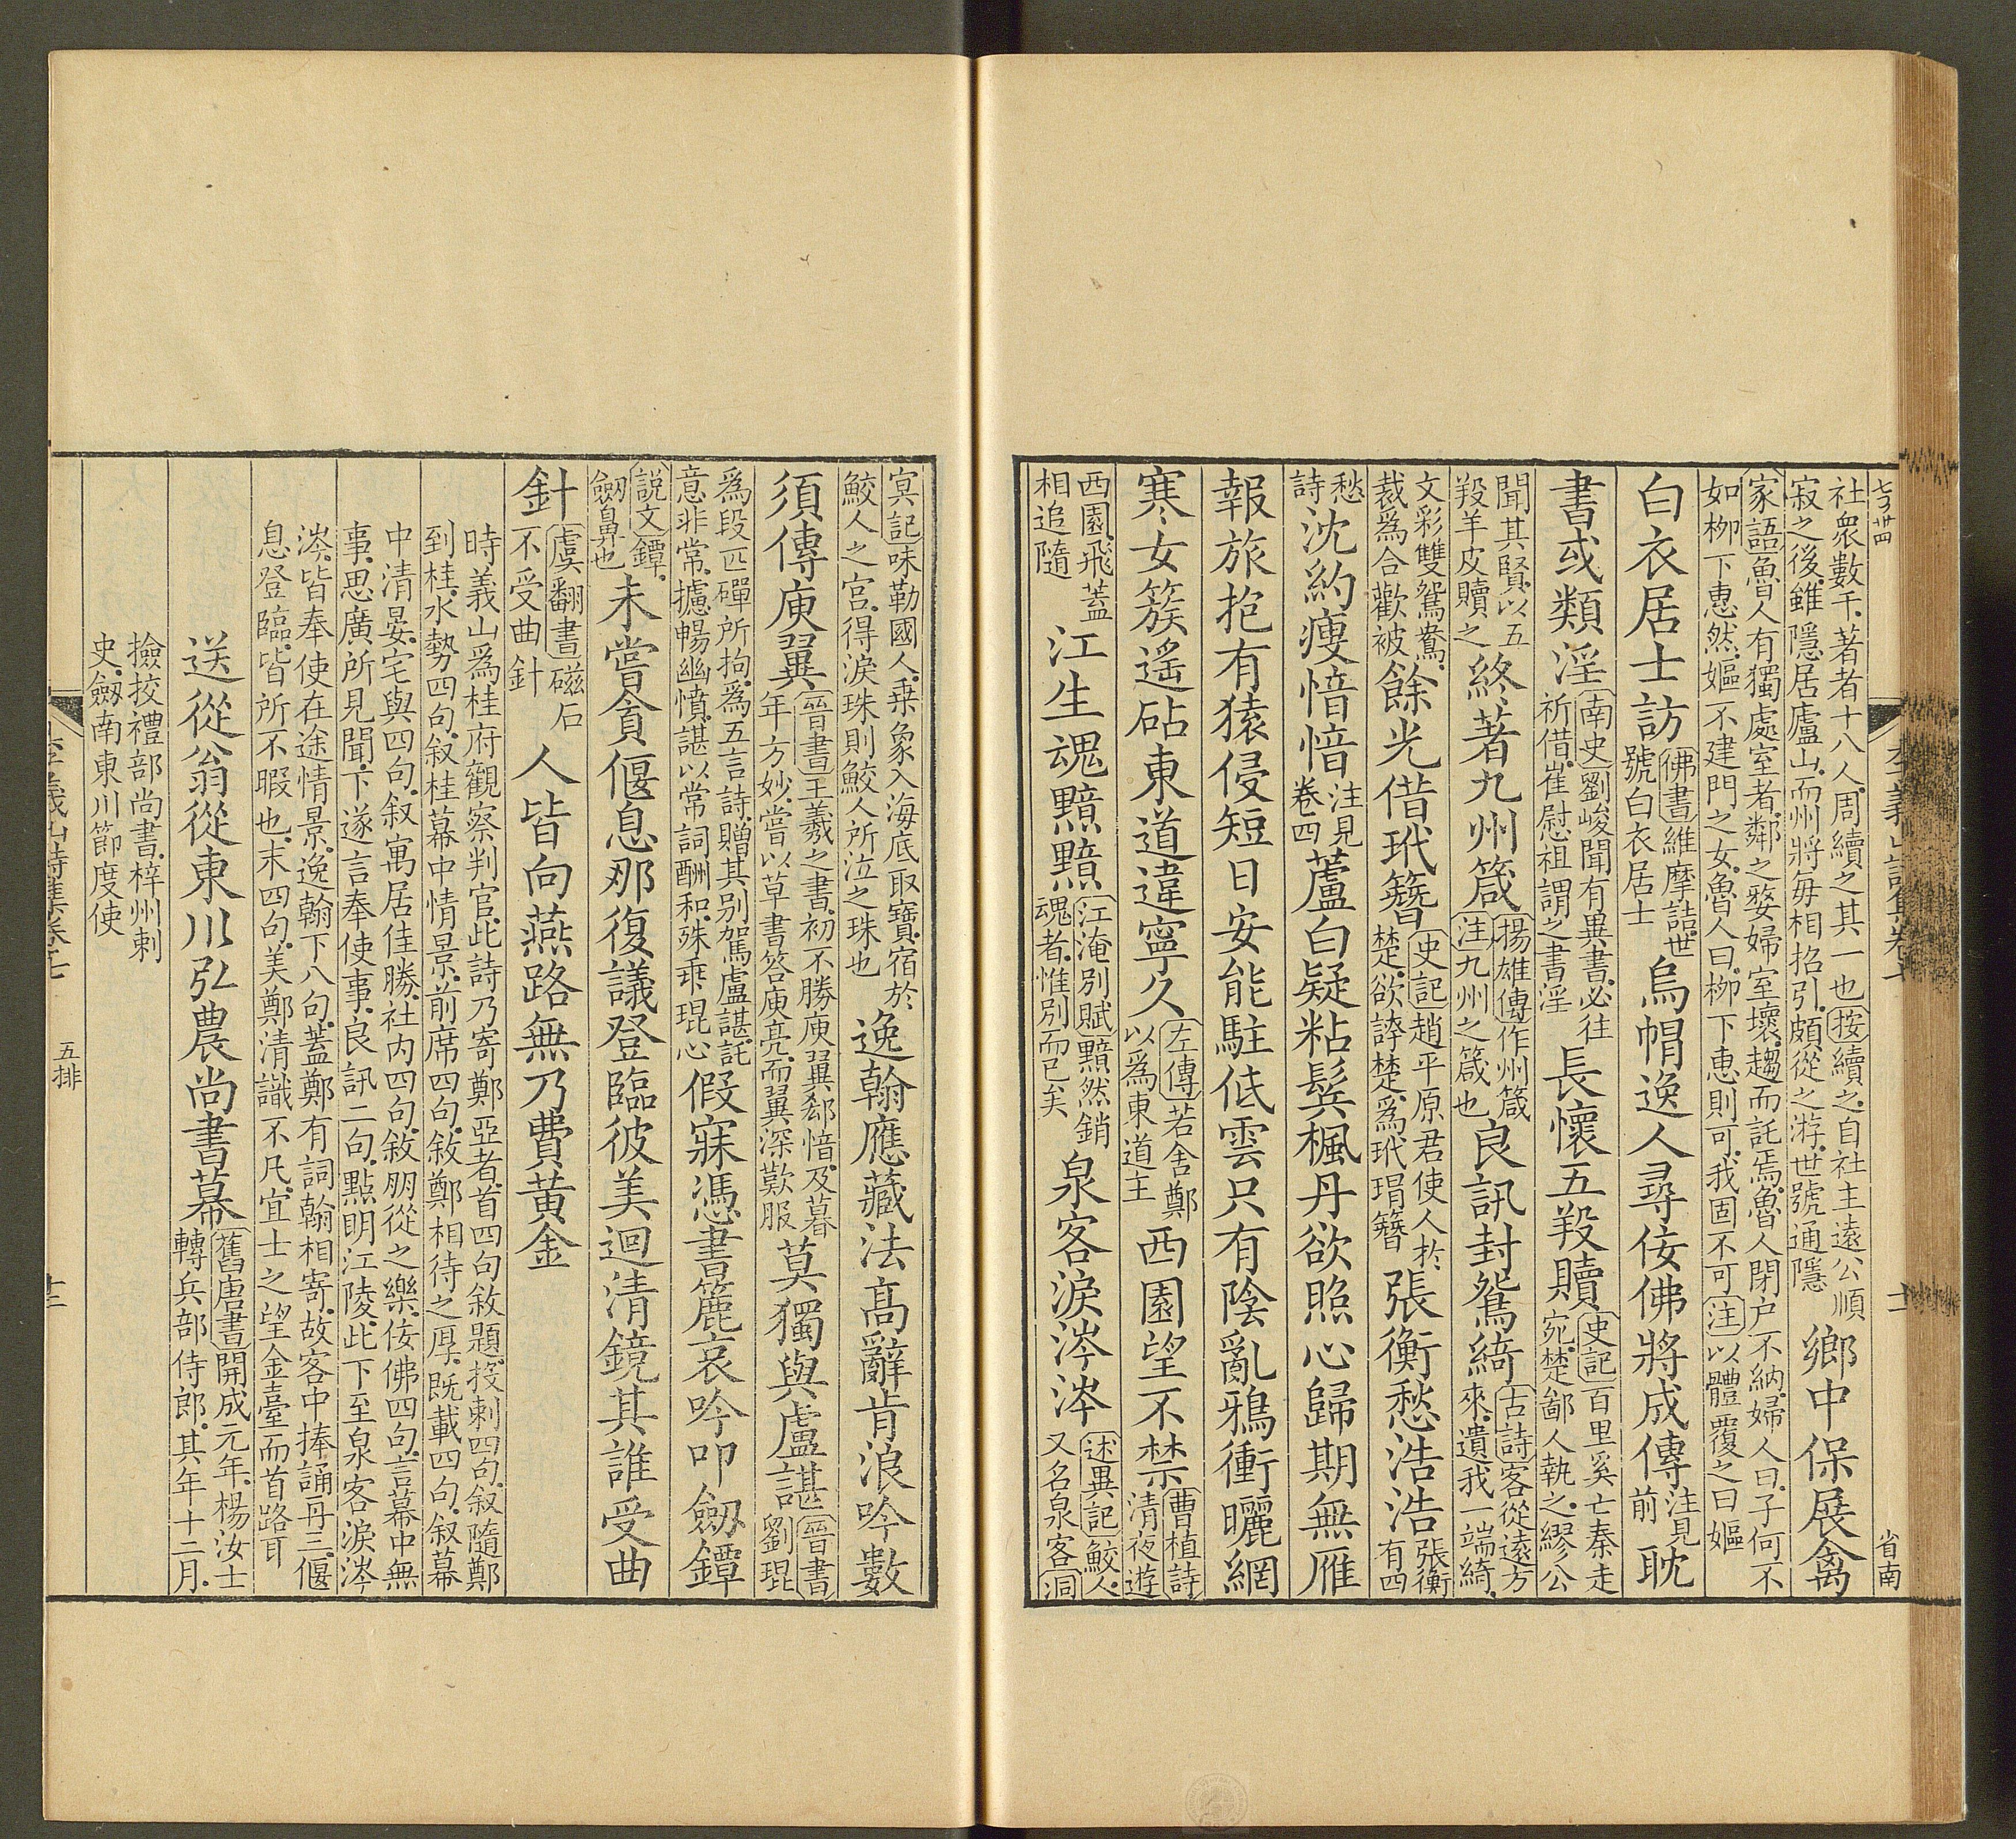 李義山詩集卷七
十一
省南
社衆數千著者十八人周續之其一也按續之自社主遠公順寂之後雖隱居廬山而州將每相招引頗從之游世號通隱鄉中保展禽
家語魯人有獨處室者鄰之嫠婦室壞趨而託焉魯人閉户不納婦人曰子何不如栁下惠然嫗不建門之女魯人曰栁下惠則可我固不可注以體覆之曰嫗
白衣居士訪佛書維摩詰世號白衣居士烏帽逸人尋佞佛將成傳注見前耽
書或類淫南史劉峻聞有異書必往祈借崔慰祖謂之書淫長懷五羖贖史記百里奚亡秦走宛楚鄙人執之繆公
聞其賢以五羖羊皮贖之終著九州箴揚雄傳作州箴注九州之箴也良訊封鴛綺古詩客從遠方來遺我一端綺
文彩雙鴛鴦裁爲合歡被餘光借玳簪史記趙平原君使人於楚欲誇楚爲玳瑁簪張衡愁浩浩張衡有四
愁詩沈約瘦愔愔注見卷四蘆白疑粘鬂楓丹欲照心歸期無雁
報旅抱有猿侵短日安能駐低雲只有陰亂鴉衝曬網
寒女簇遙砧東道違寧久左傳若舍鄭以爲東道主西園望不禁曹植詩清夜遊
西園飛蓋相追隨江生魂黯黯江淹別賦黯然銷魂者惟別而已矣泉客淚涔涔述異記鮫人又名泉客洞
冥記味勒國人乗象入海底取寶宿於鮫人之宮得淚珠則鮫人所泣之珠也逸翰應藏法高辭肯浪吟數
須傳庾翼晉書王羲之書初不勝庾翼郄愔及暮年方妙嘗以草書答庾亮而翼深歎服莫獨與盧諶晉書劉琨
爲段匹磾所拘爲五言詩贈其別駕盧諶託意非常攄暢幽憤諶以常詞酬和殊乖琨心假寐憑書簏哀吟叩劒鐔
說文鐔劒鼻也未嘗貪偃息那復議登臨彼美迴清鏡其誰受曲
針虞翻書磁石不受曲針人皆向燕路無乃費黃金
時義山爲桂府觀察判官此詩乃寄鄭亞者首四句敘題投刺四句叙隨鄭
到桂水勢四句叙桂幕中情景前席四句敘鄭相待之厚既載四句叙幕
中清晏宅與四句叙寓居佳勝社内四句敘朋從之樂佞佛四句言幕中無
事思廣所見聞下遂言奉使事良訊二句點明江陵此下至泉客淚涔
涔皆奉使在途情景逸翰下八句蓋鄭有詞翰相寄故客中捧誦再三偃
息登臨皆所不暇也末四句美鄭清識不凡宜士之望金臺而首路耳
送從翁從東川弘農尚書幕舊唐書開成元年楊汝士轉兵部侍郎其年十二月
撿挍禮部尚書梓州刺史劒南東川節度使
李義山詩集卷七
五排
十二